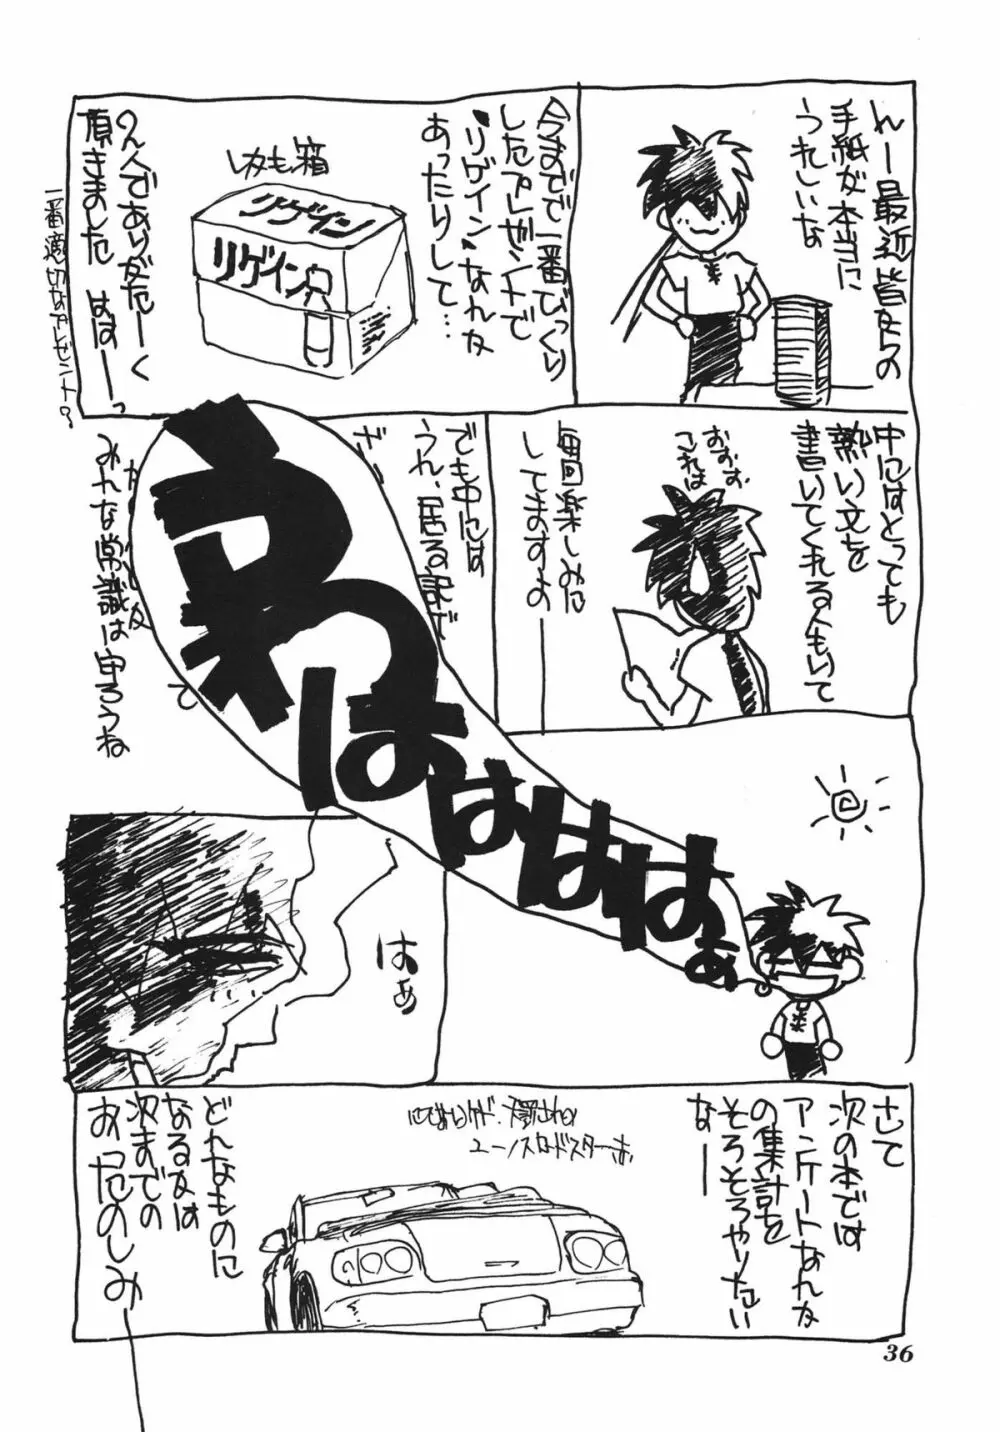 んー最近皆なの
手紙が本当に
うれしいな
今までで一番びっくり
したプレゼントで
"リゲイン"なんな
あったりして…
しかも箱
リゲイン
リゲイン
の人でありがたーく
頂きました はは——っ
一番適切なプレゼント?
中にはとっても
熱い文を
書いてくれる人もいて
おおお
これは
毎回楽しみに
してますよの——
でも中には
うれ、居る訳で
みんな常識は守ろうね
わはははははぁ
はぁ
さて
次の本では
アンケートなんな
の集計を
そろそろやりたい
なー
ユーノスロードスターさ。
どんなものに
なるかは
次までの
おったのしみ——
36